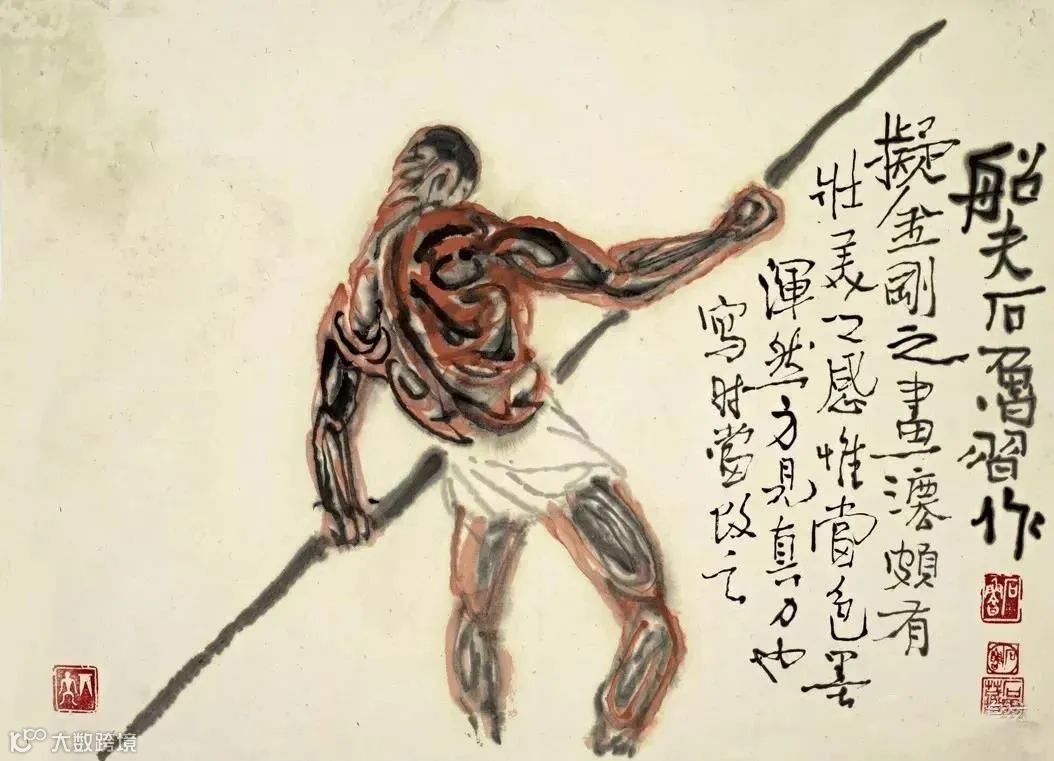 船夫石魯習作
擬金剛之畫灋頗有
壯美之感惟當色墨
渾然方見真力也
寫时當改之
石魯
大数跨境